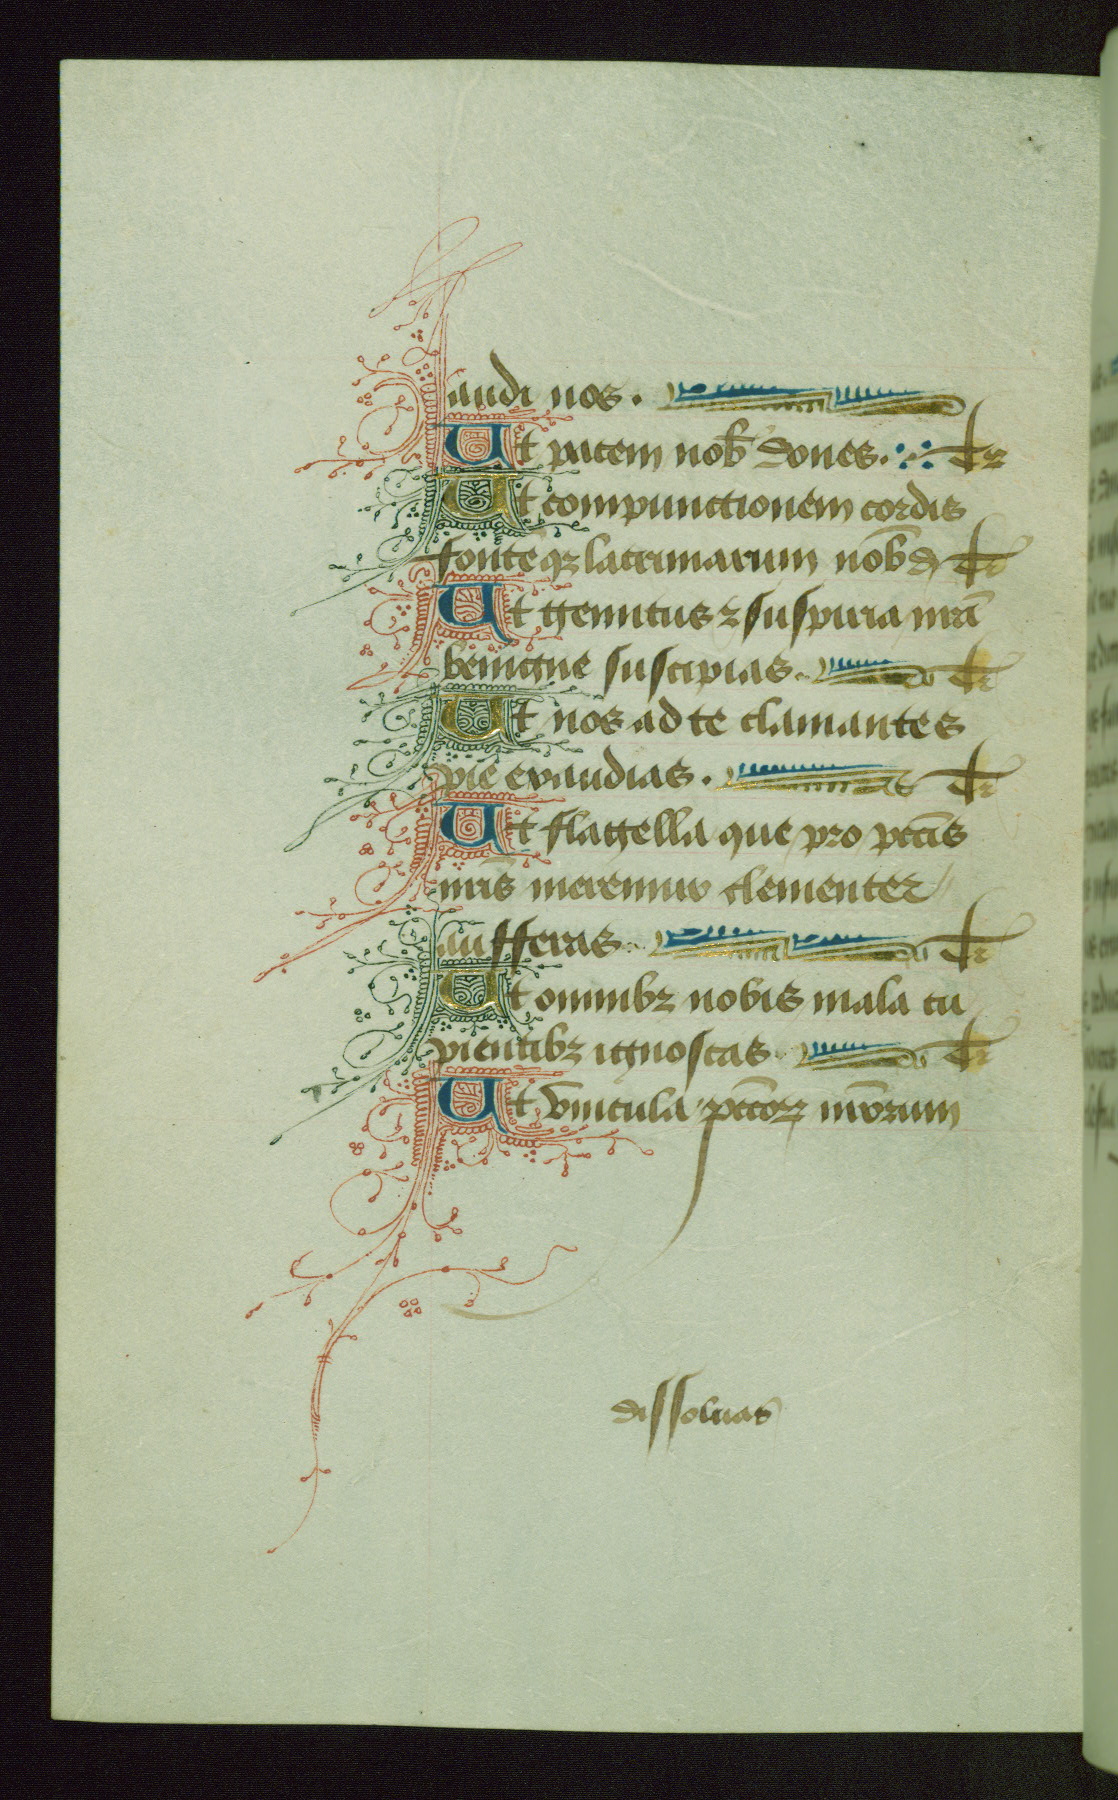 audi nos.
Ut pacem nob̄ dones. Te r
Ut compunctionem cordis
fontē qz lacrimarum nob̄ d Te r
Ut gemitus ⁊ suspiria nrā
benigne suscipias. Te r
Ut nos ad te clamantes
pie exaudias. Te r
Ut flagella que pro pctīs
nrīs meremur clementer
aufferas Te r
Ut omnibz nobis mala cu
pientibz ignoscas Te r
Ut vincula pctōrꝝ nrōrum
dissoluas